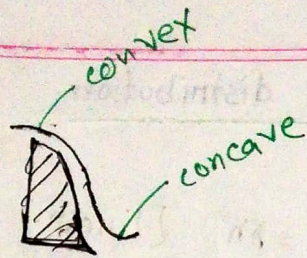 convex
concave